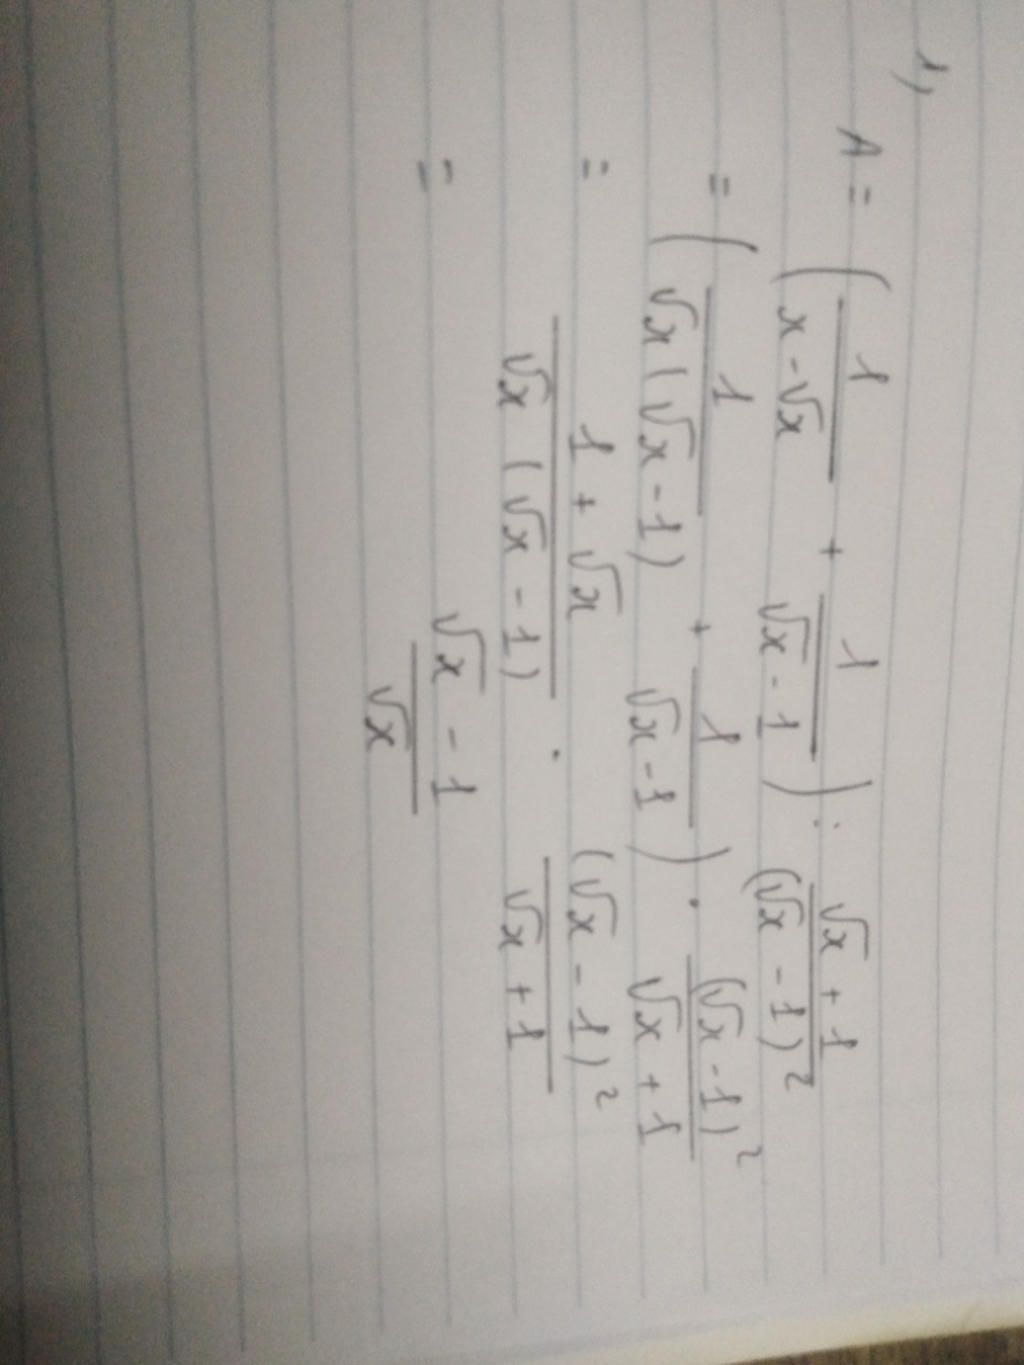 1,
A = ( 1/(x - √x) + 1/(√x - 1) ) : (√x + 1)/(√x - 1)²
= ( 1/(√x (√x - 1)) + 1/(√x - 1) ) . (√x - 1)²/(√x + 1)
= (1 + √x)/(√x (√x - 1)) . (√x - 1)²/(√x + 1)
= (√x - 1)/√x